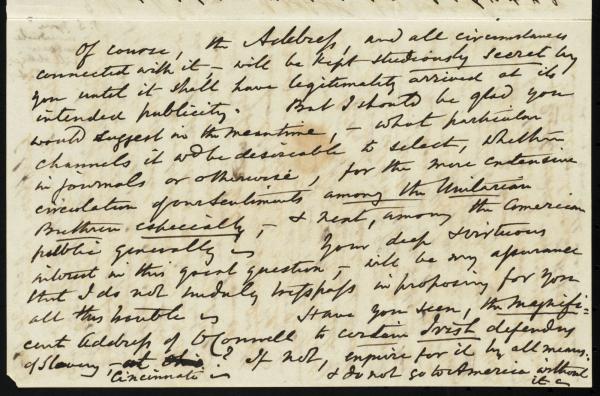 Of course, the Address, and all circumstances
connected with it, – will be kept studiously secret by
you until it shall have legitimately arrived at its
intended publicity. But I should be glad you
would suggest in the meantime, – what particular
channels it wd be desireable to select, whether
in journals or otherwise, for the more extensive
circulation of our sentiments among the Unitarian
Brethren especially, – & next, among the American
public generally. Your deep & virtuous
interest in this great question, – will be my assurance
that I do not unduly trespass in proposing for you
all this trouble. Have you seen, the magnifi-
cent Address of O'Connell to certain Irish defending
of Slavery, – at Cincinnati? If not, enquire for it by all means.
& do not go to America without
it